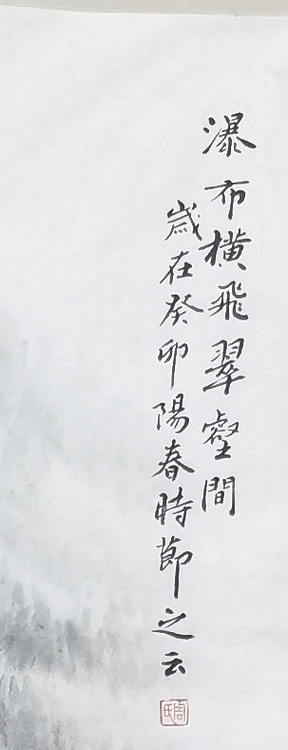 瀑布橫飛翠壑間
歲在癸卯陽春時節之云